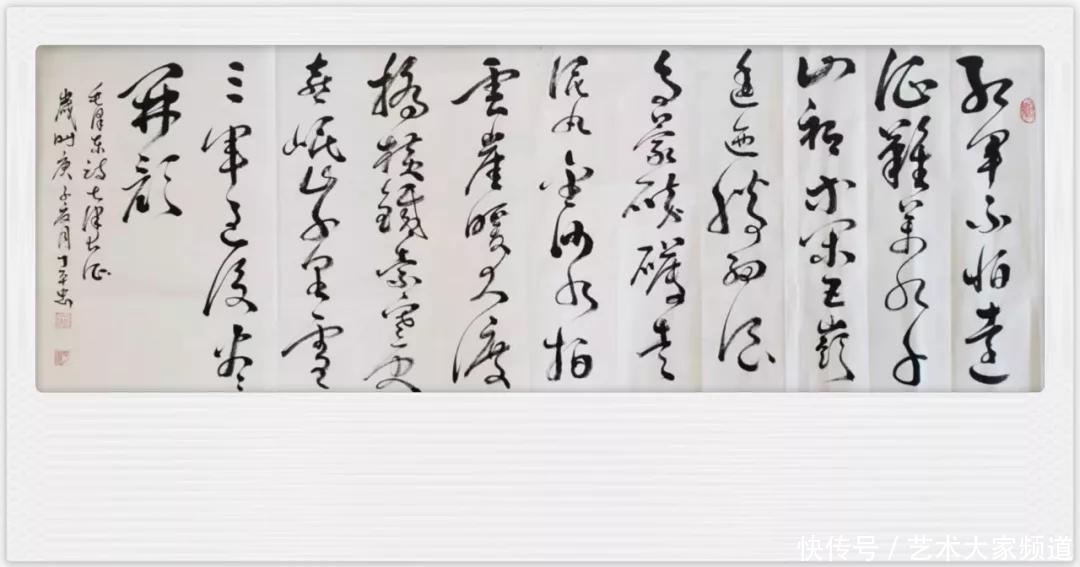 红軍不怕遠
征難萬水千
山祇等闲五嶺
逶迤腾细浪
乌蒙磅礴走
泥丸金沙水拍
雲崖暖大渡
橋横鐵索寒更
喜岷山千里雪
三軍过後尽
開颜
毛泽东诗七律长征
歲時庚子夏月
快传号 / 艺术大家频道